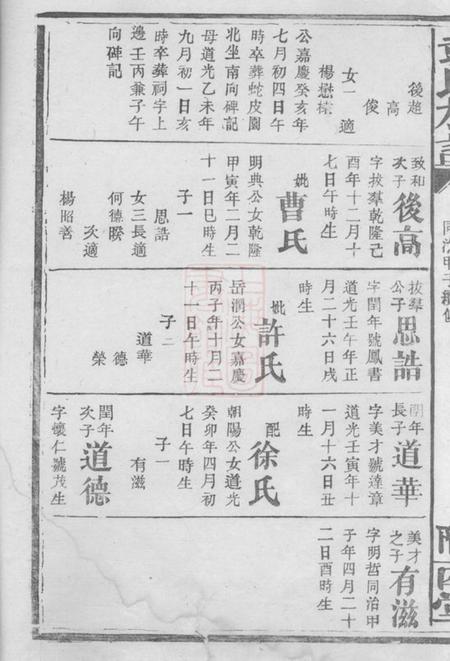 後趙
高
俊
女一適
楊懋棕
公嘉慶癸亥年
七月初四日午
時卒葬蛇皮園
北坐南向碑記
母道光乙未年
九月初一日亥
時卒葬祠字上
邊壬丙兼子午
向碑記
致和
次子
後高
字拔羣乾隆己
酉年十二月十
七日午時生
妣曹氏
明典公女乾隆
甲寅年二月二
十一日巳時生
子一
思誥
女三長適
何德睽
次適
楊昭善
拔羣
公子
思誥
字閏年號鳳書
道光壬午年正
月二十六日戌
時生
妣許氏
岳潤公女嘉慶
丙子年十月二
十一日午時生
子二
道華
德
榮
閏年
長子
道華
字美才號達章
道光壬寅年十
一月十六日丑
時生
配徐氏
朝陽公女道光
癸卯年四月初
七日午時生
子一
有滋
閏年
次子
道德
字懷仁號茂生
美才
之子
有滋
字明哲同治甲
子年四月二十
二日酉時生